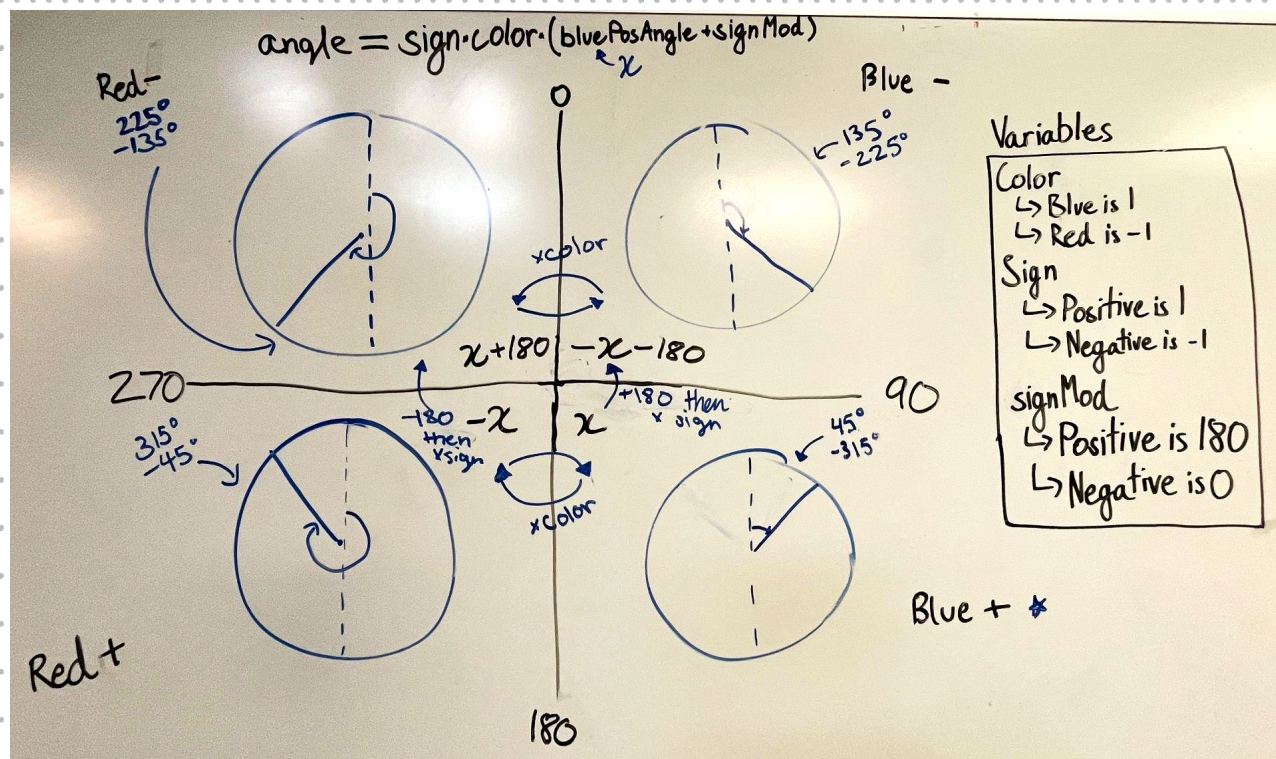 angle = sign·color·(bluePosAngle+signMod)
x
Red-
225°
-135°
0
Blue -
135°
-225°
xcolor
x+180
-x-180
270
90
-180
then
xsign
-x
x
+180 then
x sign
315°
-45°
45°
-315°
xcolor
Red +
Blue +
180
Variables
Color
↳ Blue is 1
↳ Red is -1
Sign
↳ Positive is 1
↳ Negative is -1
signMod
↳ Positive is 180
↳ Negative is 0